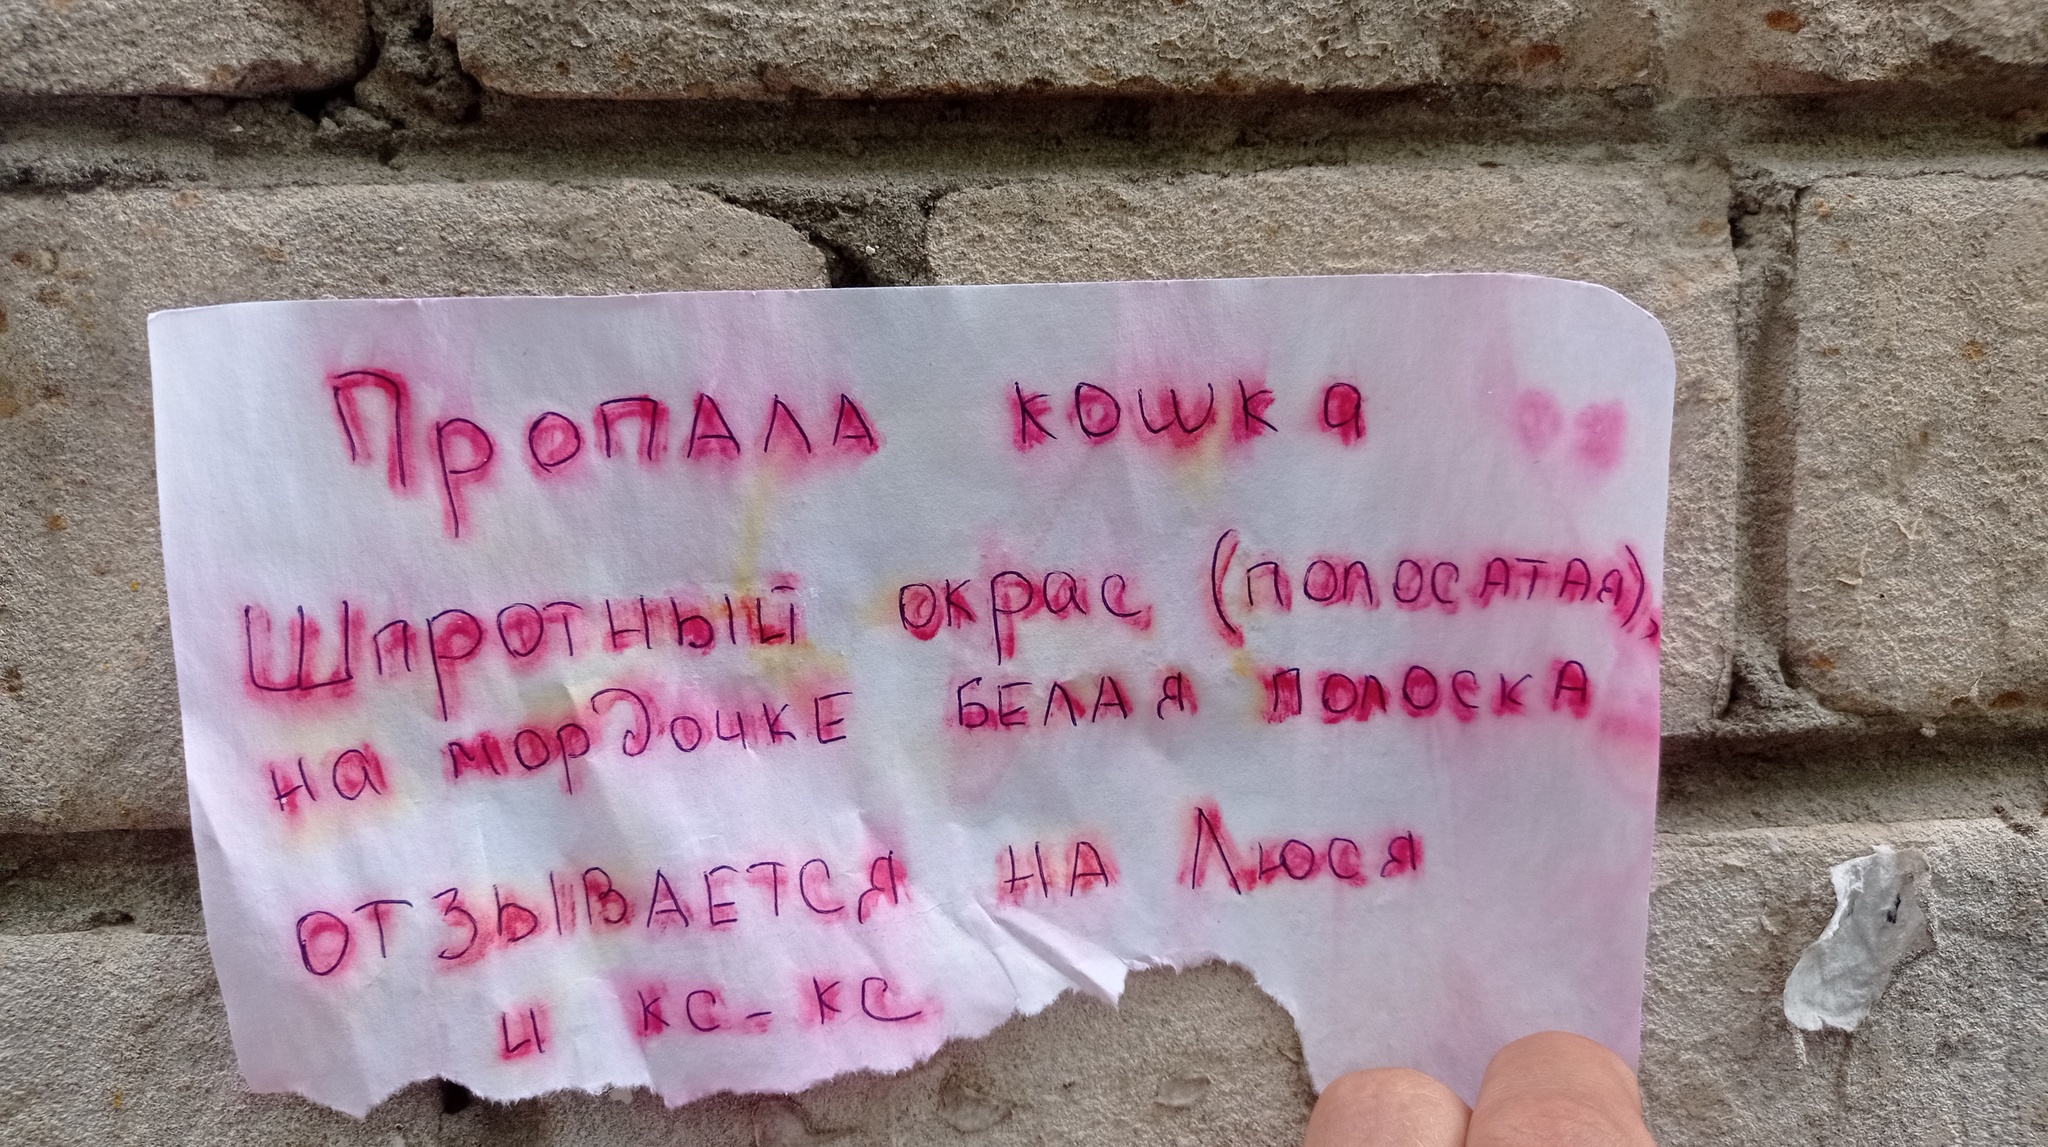 Пропала кошка
Шпротный окрас (полосатая),
на мордочке белая полоска
отзывается на Люся
и кс-кс